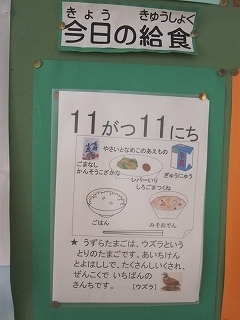 きょう きゅうしょく
今日の給食
11がつ11にち
やさいとなめこのあえもの
ごまなし
かんそうこざかな
ぎゅうにゅう
レバーいり
しろごまつくね
ごはん
みそおでん
★ うずらたまごは、ウズラという
とりのたまごです。あいちけん
とよはしして、たくさんしいくされ、
ぜんこくで いちばんの
さんちです。
[ウズラ]